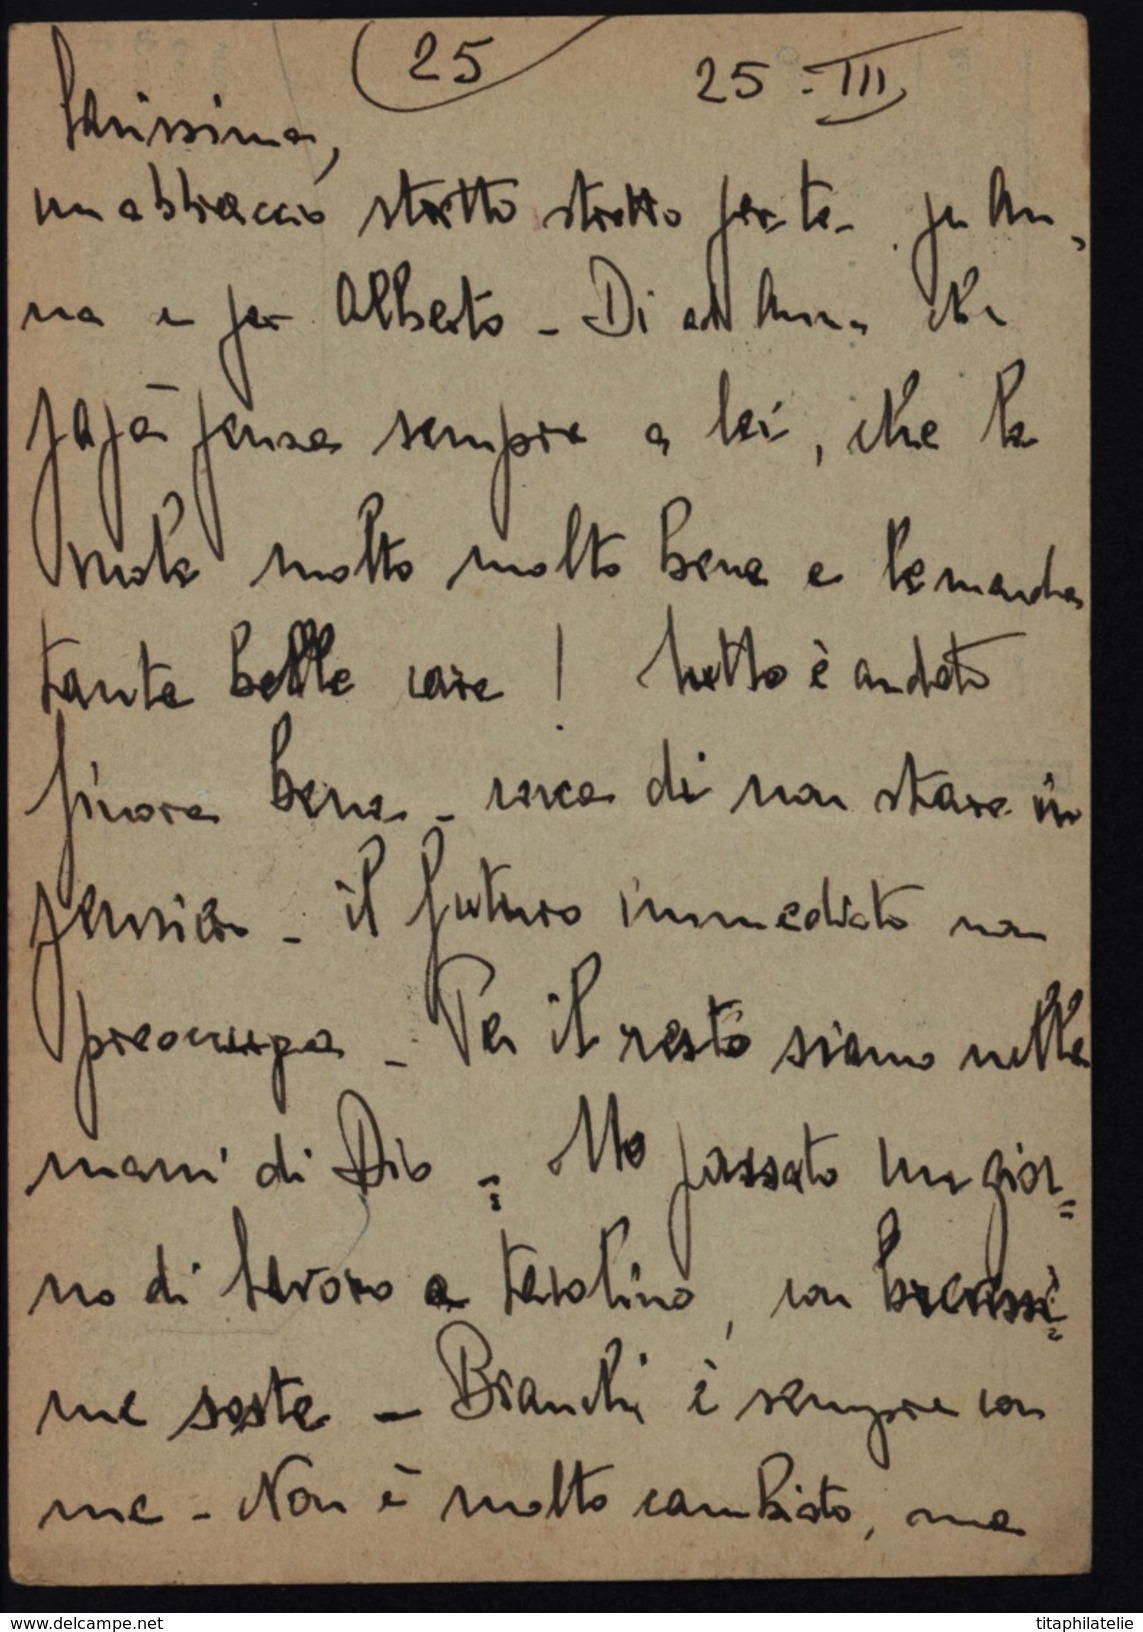 25
25 - III
Carissima,
un abbraccio stretto stretto per te - per An-
na e per Alberto - Di ad Anna che
papà pensa sempre a lei, che la
vuole molto molto bene e le manda
tante belle cose! Tutto è andato
finora bene - cerca di non stare in
pensiero - il futuro immediato non
preoccupa - Per il resto siamo nelle
mani di Dio - Ho passato un gior=
no di lavoro a tavolino, con brevissi=
me soste - Bianchi è sempre con
me - Non è molto cambiato, ma
www.delcampe.net
titaphilatelie